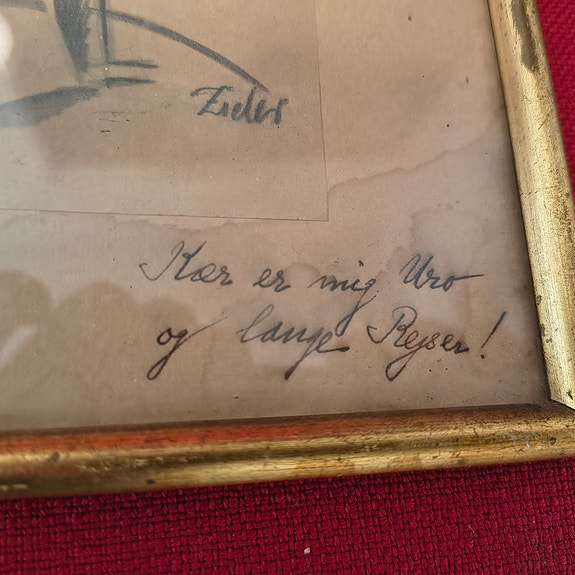 Zieler
Kær er mig Uro
og lange Rejser!